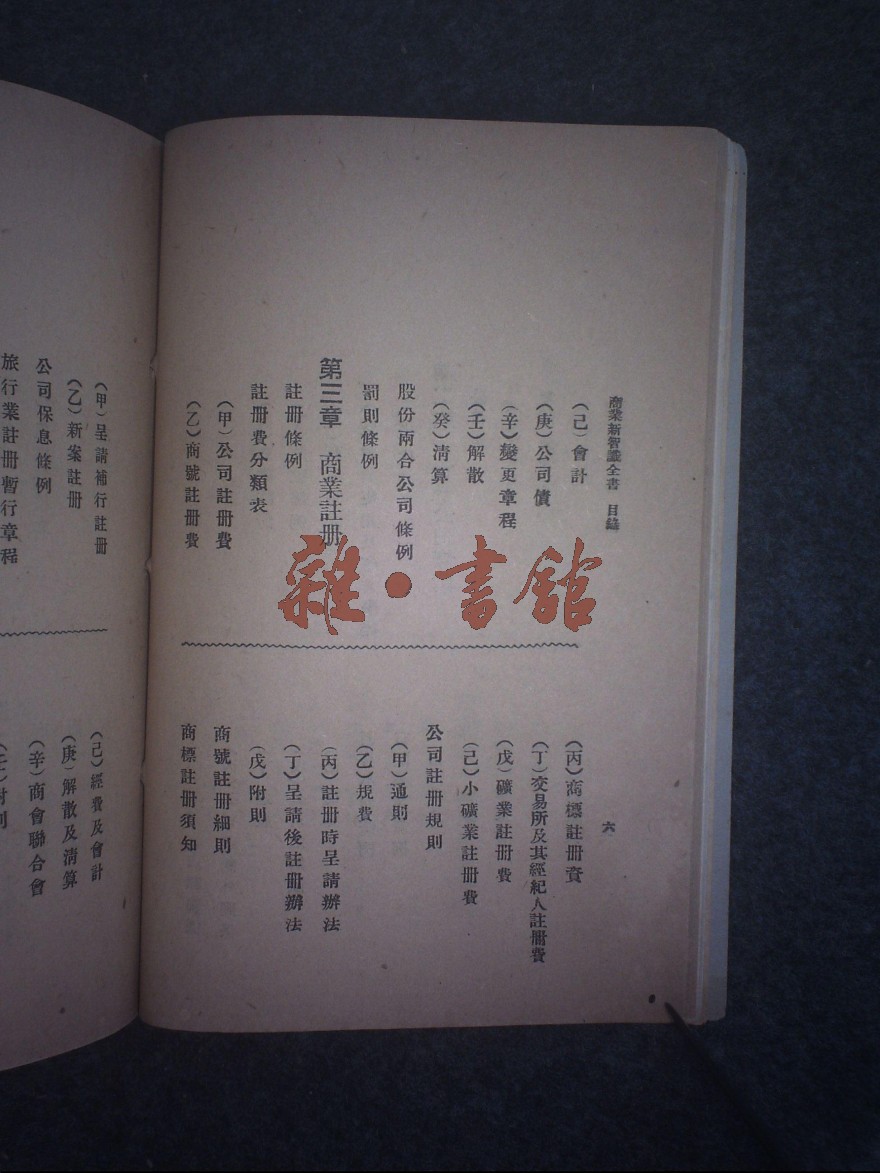 商業新智識全書 目錄
六
（己）會計
（庚）公司債
（辛）變更章程
（壬）解散
（癸）清算
股份兩合公司條例
罰則條例
第三章 商業註册
註册條例
註册費分類表
（甲）公司註册費
（乙）商號註册費
（丙）商標註册費
（丁）交易所及其經紀人註册費
（戊）礦業註册費
（己）小礦業註册費
公司註册規則
（甲）通則
（乙）規費
（丙）註册時呈請辦法
（丁）呈請後註册辦法
（戊）附則
商號註册細則
商標註册須知
（甲）呈請補行註册
（乙）新案註册
公司保息條例
旅行業註册暫行章程
（己）經費及會計
（庚）解散及清算
（辛）商會聯合會
附則
雜·書館